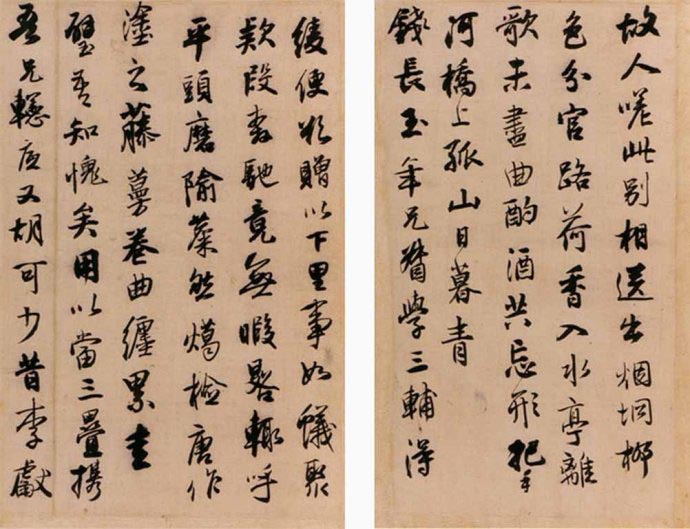 故人嗟此别相送出烟坰柳
色分官路荷香入水亭離
歌未盡曲酌酒共忘形把手
河橋上孤山日暮青
錢長玉年兄督學三輔得
綾便以贈以下里事如蟻聚
款段書馳竟無暇晷輒呼
平頭磨隃麋然燭檢唐作
塗之藤蔓卷曲纏累圭
璧吾知愧矣用以當三疊攜
吾兄轗度又胡可少昔李獻